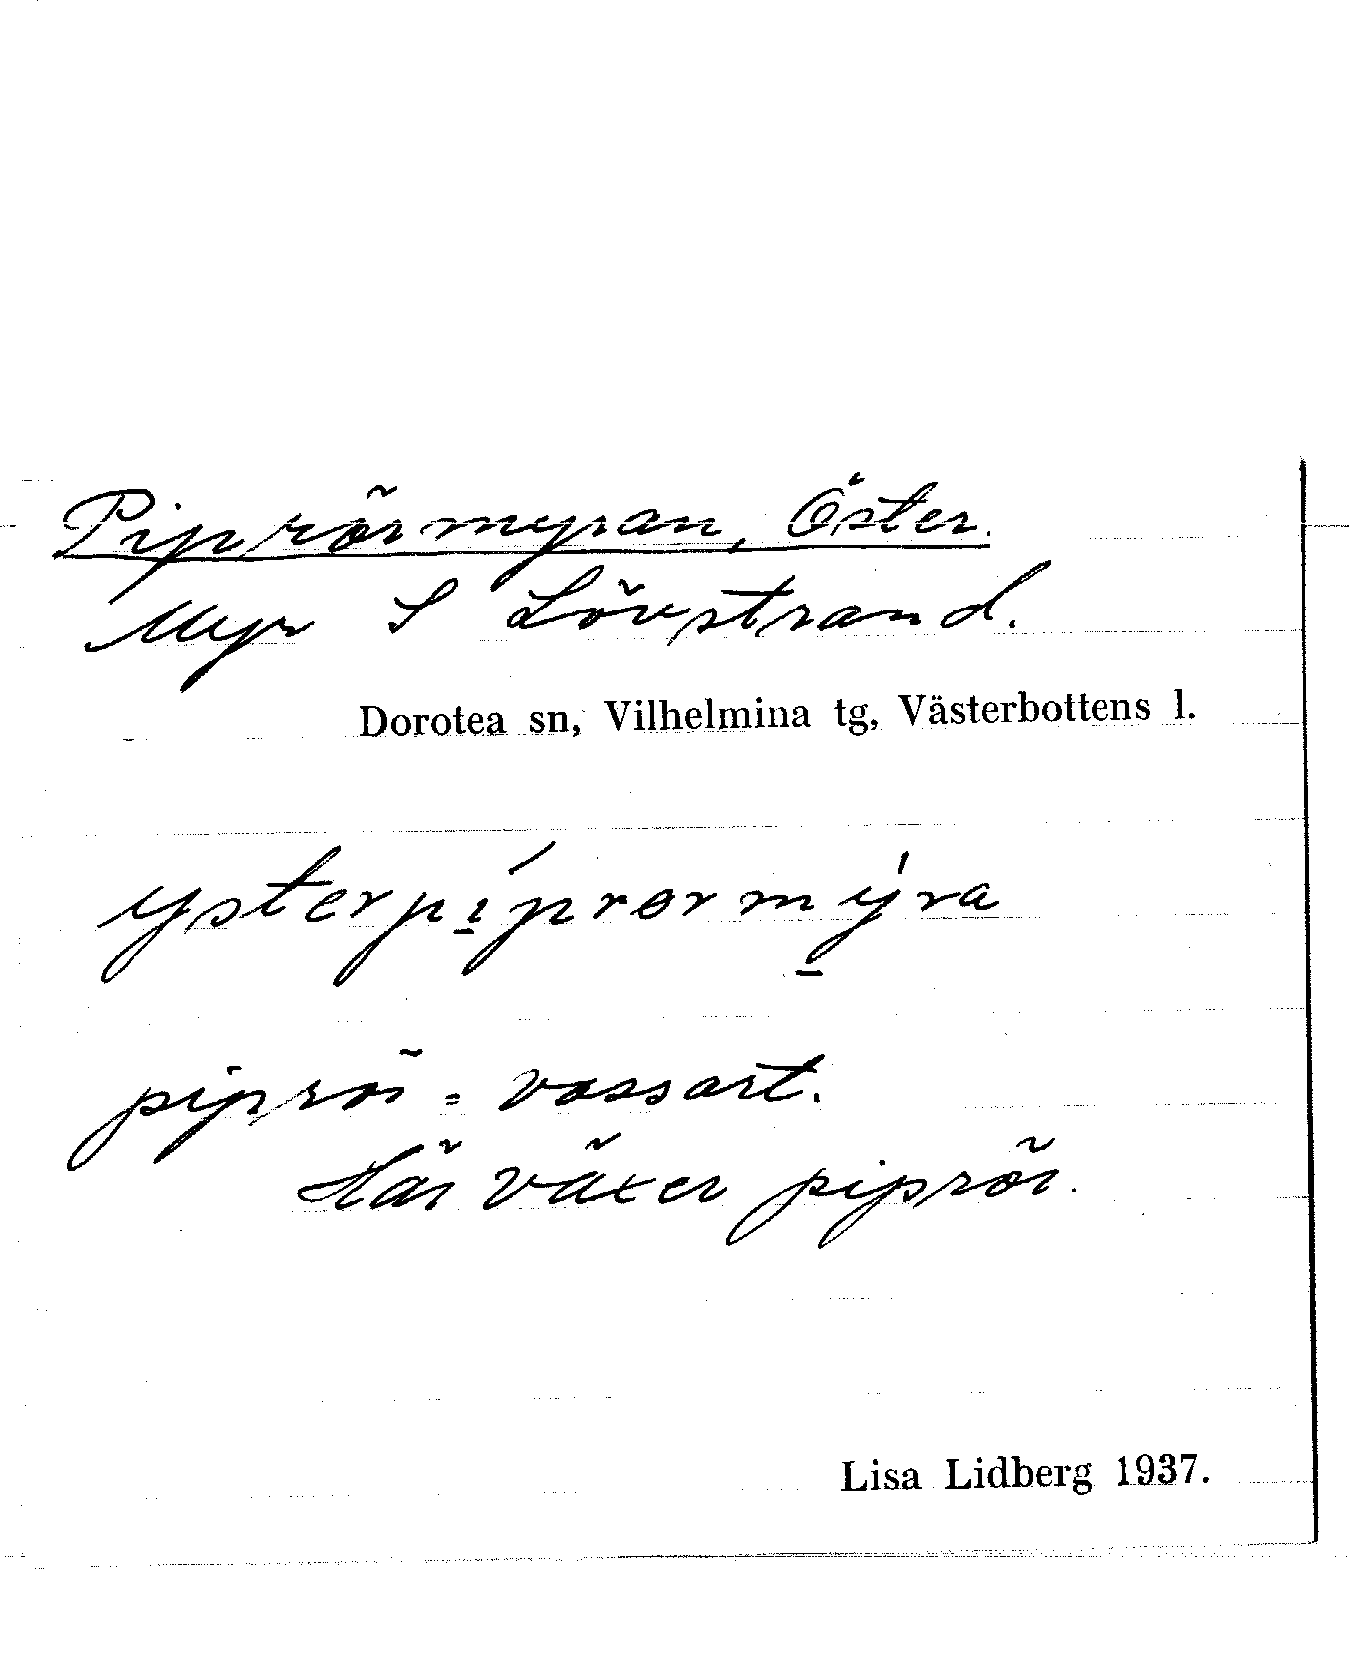 Piprörmyran, Öster.
Myr S Lövstrand.
Dorotea sn, Vilhelmina tg, Västerbottens l.
ysterpı̱́prɵrmý̱ra
piprör = vassart.
Här växer piprör.
Lisa Lidberg 1937.